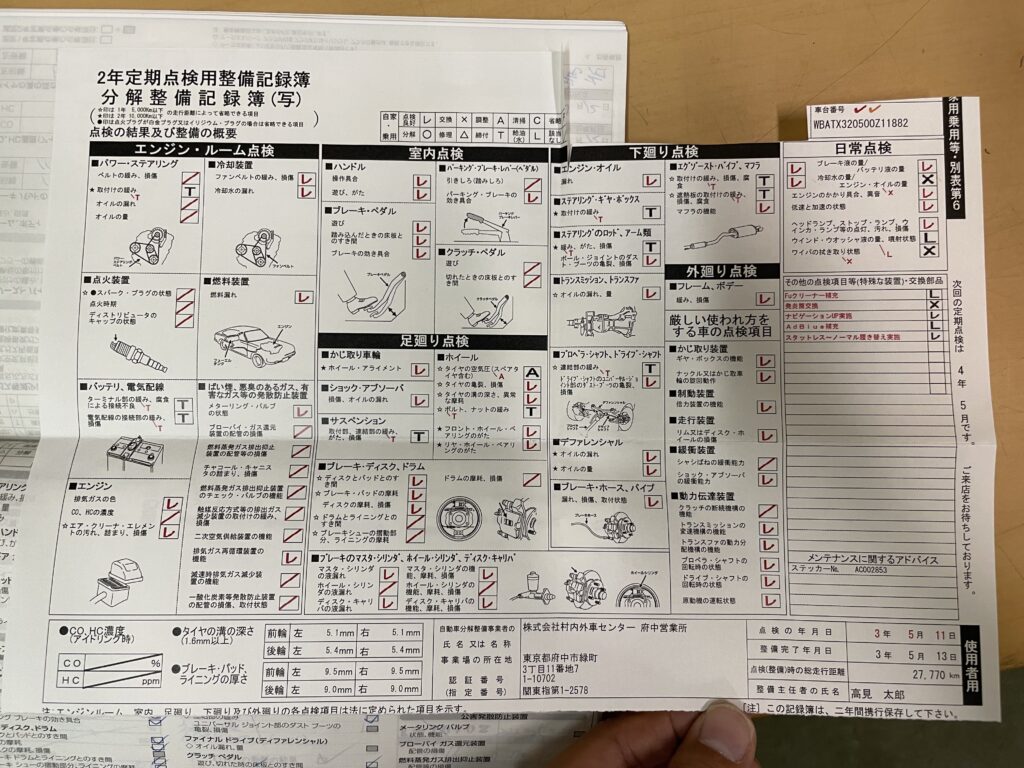 2年定期点検用整備記録簿
分解整備記録簿(写)
☆印は1年 5,000Km以下
★印は2年 10,000Km以下
の走行距離によって省略できる項目
●印は点火プラグが白金プラグ又はイリジウム・プラグの場合は省略できる項目
点検の結果及び整備の概要
自家・乗用
点検良好 レ 交換 × 調整 A 清掃 C 省略
分解 ○ 修理 △ 締付 T 給油(水) L 該当なし
車台番号
WBATX320500Z11882
エンジン・ルーム点検
■パワー・ステアリング
ベルトの緩み、損傷
★取付けの緩み T
オイルの漏れ
オイルの量
■冷却装置
ファンベルトの緩み、損傷 レ
冷却水の漏れ レ
ファンベルト
■点火装置
☆●スパーク・プラグの状態
点火時期
ディストリビュータのキャップの状態
■燃料装置
燃料漏れ レ
エンジン
■バッテリ、電気配線
ターミナル部の緩み、腐食による接続不良 T
電気配線の接続部の緩み、損傷 T
■ばい煙、悪臭のあるガス、有害なガス等の発散防止装置
メターリング・バルブの状態
ブローバイ・ガス還元装置の配管の損傷
燃料蒸発ガス排出抑止装置の配管等の損傷
チャコール・キャニスタの詰まり、損傷
燃料蒸発ガス排出抑止装置のチェック・バルブの機能
触媒反応方式等の排出ガス減少装置の取付けの緩み、損傷
二次空気供給装置の機能
排気ガス再循環装置の機能
減速時排気ガス減少装置の機能
一酸化炭素等発散防止装置の配管の損傷、取付状態
■エンジン
排気ガスの色
CO、HCの濃度
☆エア・クリーナ・エレメントの汚れ、詰まり、損傷
室内点検
■ハンドル
操作具合 レ
遊び、がた レ
■ブレーキ・ペダル
遊び レ
踏み込んだときの床板とのすき間 レ
ブレーキの効き具合 レ
ブレーキペダル
■パーキング・ブレーキ・レバー(ペダル)
引きしろ(踏みしろ)
パーキング・ブレーキの効き具合 レ
■クラッチ・ペダル
遊び
切れたときの床板とのすき間
クラッチペダル
足廻り点検
■かじ取り車輪
☆ホイール・アライメント レ
■ショック・アブソーバ
損傷、オイルの漏れ レ
■サスペンション
取付部、連結部の緩み、がた、損傷 T
■ホイール
☆タイヤの空気圧(スペアタイヤ含む) A
☆タイヤの亀裂、損傷 レ
☆タイヤの溝の深さ、異常な摩耗 レ
☆ボルト、ナットの緩み T
★フロント・ホイール・ベアリングのがた レ
★リヤ・ホイール・ベアリングのがた レ
■ブレーキ・ディスク、ドラム
☆ディスクとパッドとのすき間 レ
☆ブレーキ・パッドの摩耗 レ
ディスクの摩耗、損傷 レ
☆ドラムとライニングとのすき間
☆ブレーキシューの摺動部分、ライニングの摩耗
ドラムの摩耗、損傷
■ブレーキのマスタ・シリンダ、ホイール・シリンダ、ディスク・キャリパ
マスタ・シリンダの液漏れ レ
ホイール・シリンダの液漏れ
ディスク・キャリパの液漏れ レ
マスタ・シリンダの機能、摩耗、損傷 レ
ホイール・シリンダの機能、摩耗、損傷
ディスク・キャリパの機能、摩耗、損傷 レ
ホイールシリンダ
下廻り点検
■エンジン・オイル
漏れ レ
■ステアリング・ギヤ・ボックス
★取付けの緩み T
■ステアリングのロッド、アーム類
★緩み、がた、損傷 T
ボール・ジョイントのダスト・ブーツの亀裂、損傷 レ
■トランスミッション、トランスファ
☆オイルの漏れ、量 レ
■プロペラ・シャフト、ドライブ・シャフト
☆連結部の緩み T
ドライブ・シャフトのユニバーサル・ジョイント部のダスト・ブーツの亀裂、損傷 レ
■デファレンシャル
★オイルの漏れ レ
★オイルの量 レ
■ブレーキ・ホース、パイプ
漏れ、損傷、取付状態 レ
■エグゾースト・パイプ、マフラ
☆取付けの緩み、損傷、腐食 T
☆遮熱板の取付けの緩み、損傷、腐食 T
マフラの機能 レ
外廻り点検
■フレーム、ボデー
緩み、損傷 レ
厳しい使われ方をする車の点検項目
■かじ取り装置
ギヤ・ボックスの機能 レ
ナックル又はかじ取車輪の旋回動作 レ
■制動装置
倍力装置の機能 レ
■走行装置
リム又はディスク・ホイールの損傷 レ
■緩衝装置
シャシばねの緩衝能力
ショック・アブソーバの緩衝能力 レ
■動力伝達装置
クラッチの断続機構の機能
トランスミッションの変速機構の機能 レ
トランスファの動力分配機構の機能 レ
プロペラ・シャフトの回転時の状態 レ
ドライブ・シャフトの回転時の状態 レ
原動機の運転状態 レ
日常点検
ブレーキ液の量
バッテリ液の量
冷却水の量
エンジン・オイルの量
エンジンのかかり具合、異音
低速と加速の状態
ヘッドランプ、ストップ・ランプ、ウインカ・ランプ等の点灯、汚れ、損傷
ウインド・ウオッシャ液の量、噴射状態
ワイパの拭き取り状態
その他の点検項目等(特殊な装置)・交換部品
Fuクリーナー補充 L
発炎筒交換 X
ナビゲーションUP実施
AdBlue補充 L
スタットレス→ノーマル履き替え実施
メンテナンスに関するアドバイス
ステッカーNo. AC002853
家用乗用等・別表第6
次回の定期点検は 4年 5月です。
ご来店をお待ちしております。
使用者用
●CO、HC濃度
(アイドリング時)
CO %
HC ppm
●タイヤの溝の深さ
(1.6mm以上)
前輪 左 5.1mm 右 5.1mm
後輪 左 5.4mm 右 5.4mm
●ブレーキ・パッド、ライニングの厚さ
前輪 左 9.5mm 右 9.5mm
後輪 左 9.0mm 右 9.0mm
自動車分解整備事業者の
氏名又は名称
事業場の所在地
認証番号
(指定番号)
株式会社村内外車センター 府中営業所
東京都府中市緑町
3丁目11番地7
1-10702
関東指第1-2578
点検の年月日 3年 5月 11日
整備完了年月日 3年 5月 13日
点検(整備)時の総走行距離 27,770 km
整備主任者の氏名 高見 太郎
注:エンジンルーム、室内、足廻り、下廻り及び外廻りの各点検項目は法に定められた項目を示す。
[注] この記録簿は、二年間携行保存して下さい。
ユニバーサル ジョイント部のダスト ブーツの
ファイナル ドライブ(ディファレンシャル)
◇ オイル漏れ、量
クラッチ ペダル
遊び、切れた時の床板とのすき間
公害発散防止装置
メータリング バルブ
ブローバイ ガス還元装置
配管の損傷
燃料蒸発ガス排出抑止装置